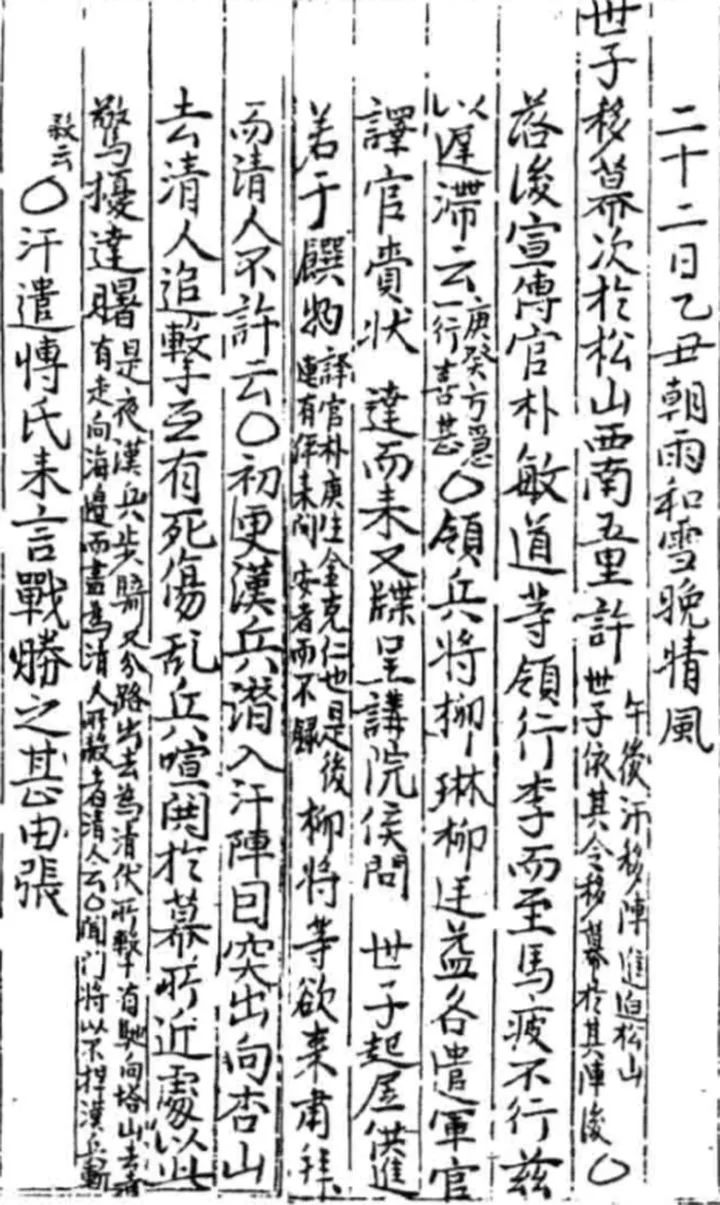 二十二日乙丑朝雨和雪晚晴風
世子移幕次於松山西南五里許午後汗移陣進迫松山世子依其令移幕於其陣後○
落後宣傳官朴敏道等領行李而至馬疲不行茲
以遲滯云庚癸方急一行喜甚○領兵將柳琳柳廷益各遣軍官
譯官賫狀達而來又牒呈講院候問世子起居供進
若干饌物譯官朴庚生金克仁也是後連有伻來問安者而不錄柳將等欲來肅拜
而清人不許云○初更漢兵潛入汗陣因突出向杏山
去清人追擊至有死傷乱兵喧鬨於幕所近處以此
驚擾達曙是夜漢兵步騎又分路出去為清伏所擊有馳向塔山去有走向海邊而盡為清人所敵者清人云○閽門將以不担漢兵斬
殺云○汗遣愽氏來言戰勝之甚由張